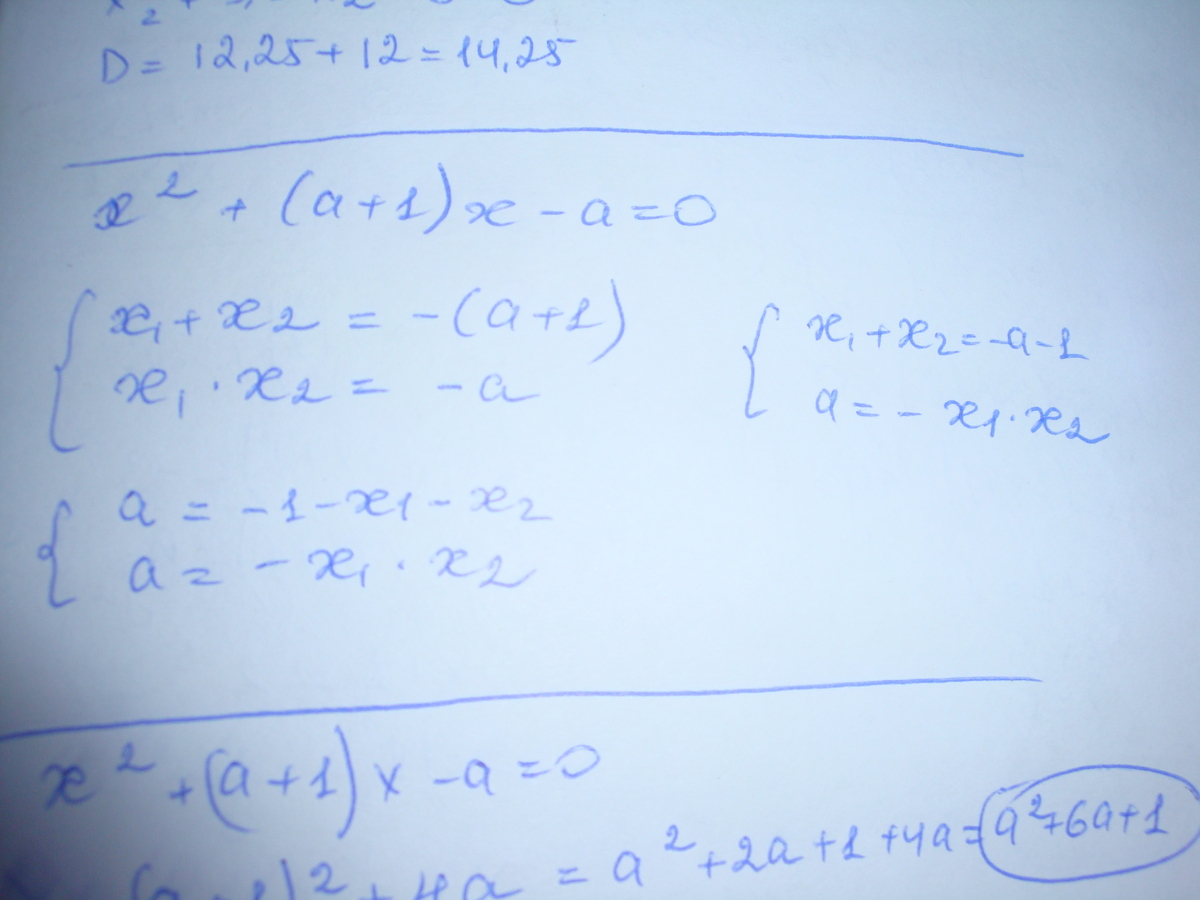 D = 12,25 + 12 = 14,25
x² + (a+1)x - a = 0
x₁ + x₂ = -(a+1)
x₁ · x₂ = -a
x₁ + x₂ = -a - 1
a = - x₁ · x₂
a = -1 - x₁ - x₂
a = - x₁ · x₂
x² + (a+1)x - a = 0
)² + 4a = a² + 2a + 1 + 4a = a² + 6a + 1